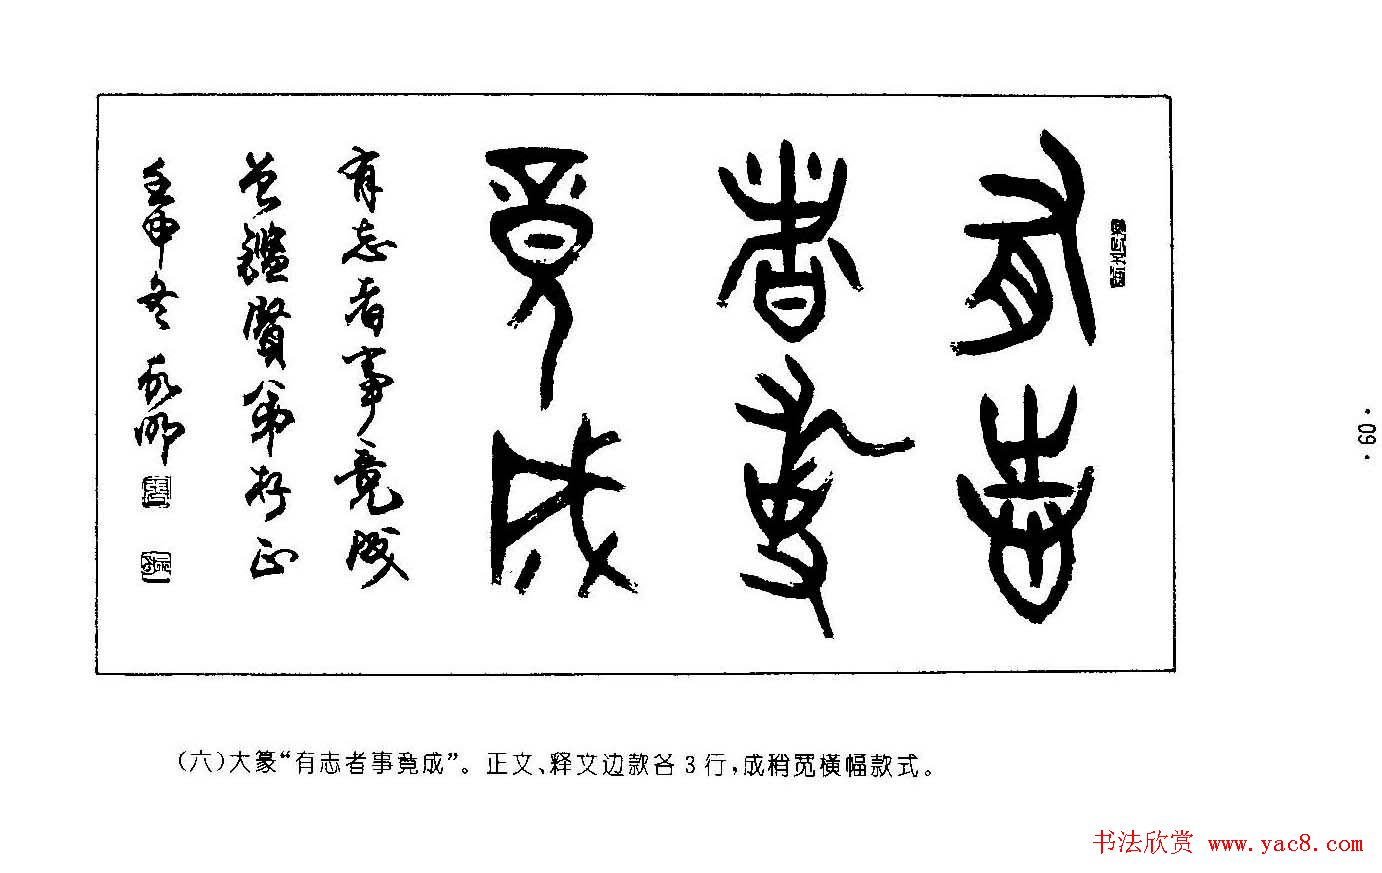 有志
者事
竟成
有志者事竟成
鑑賢弟正
壬申冬明
·60·
(六)大篆“有志者事竟成”。正文、释文边款各3行,成稍宽横幅款式。
书法欣赏 www.yac8.com